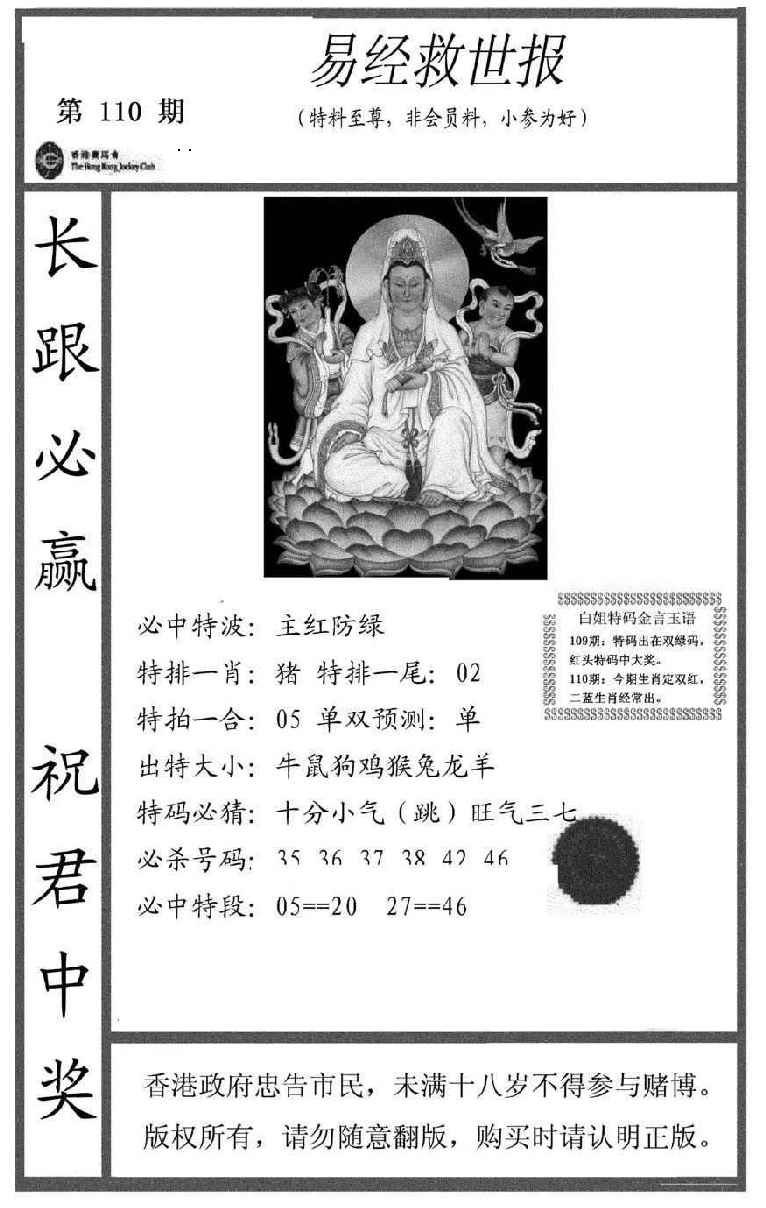 易经救世报
第 110 期
（特料至尊，非会员料，小参为好）
香港賽馬會
The Hong Kong Jockey Club
长跟必赢 祝君中奖
必中特波：主红防绿
特排一肖：猪 特排一尾：02
特拍一合：05 单双预测：单
出特大小：牛鼠狗鸡猴兔龙羊
特码必猜：十分小气（跳）旺气三七
必杀号码：35 36 37 38 42 46
必中特段：05==20 27==46
白姐特码金言玉语
109期：特码出在双绿码，
红头特码中大奖。
110期：今期生肖定双红，
二蓝生肖经常出。
香港政府忠告市民，未满十八岁不得参与赌博。
版权所有，请勿随意翻版，购买时请认明正版。